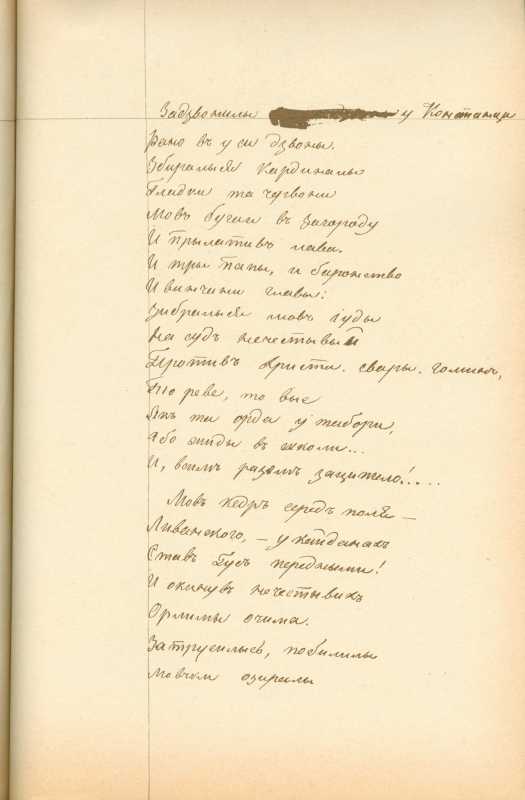 Задзвонилы у Констанци
Рано въ уси дзвоны.
Збиралыся кардиналы
Гладки та червони
Мовъ бугаи въ загороду
И прылативъ лава.
И тры папы, и баронство
И винчани главы:
Зибралыся мовъ іуды
На судъ нечестывый
Противъ Христа. свары. гоминъ,
То реве, то вые
Якъ та орда у табори,
Або жиды въ школи...
И, всимъ разомъ заципило!....
Мовъ кедръ середъ поля —
Ливанского, — у кайданахъ
Ставъ Гусъ передъ ными!
И окинувъ нечестывихъ
Орлими очима.
Затрусилысь, побилилы
Мовчки озирали